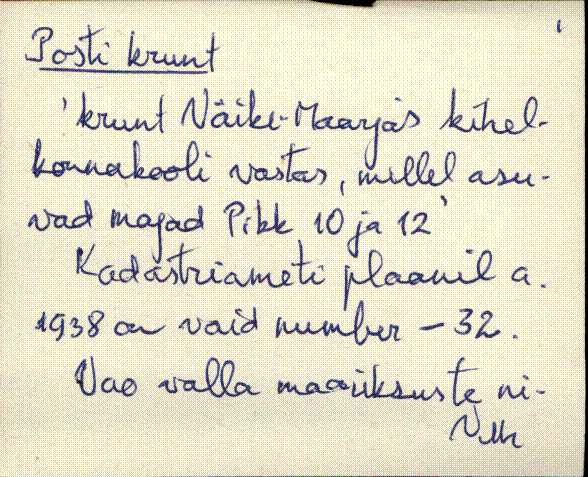 1
Posti krunt
'krunt Väike-Maarjas kihel-
konnakooli vastas, millel asu-
vad majad Pikk 10 ja 12'
Kadastriameti plaanil a.
1938 on vaid number – 32.
Vao valla maaüksuste ni-
VMr